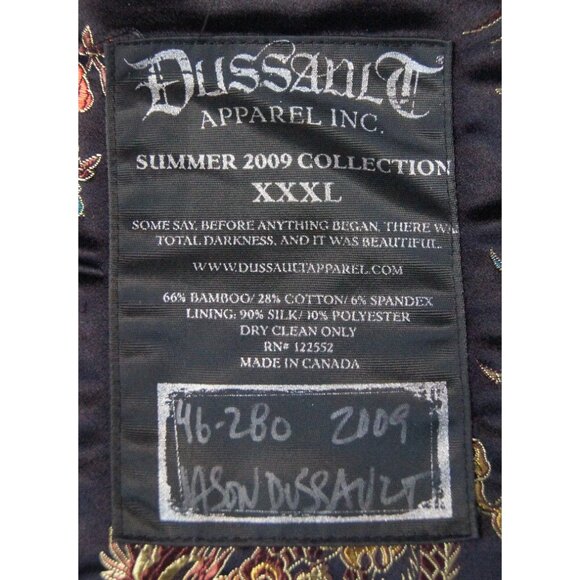 DUSSAULT®
APPAREL INC.
SUMMER 2009 COLLECTION
XXXL
SOME SAY, BEFORE ANYTHING BEGAN, THERE WA
TOTAL DARKNESS, AND IT WAS BEAUTIFUL.
WWW.DUSSAULTAPPAREL.COM
66% BAMBOO/ 28% COTTON/ 6% SPANDEX
LINING: 90% SILK/ 10% POLYESTER
DRY CLEAN ONLY
RN# 122552
MADE IN CANADA
46-280 2009
JASON DUSSAULT